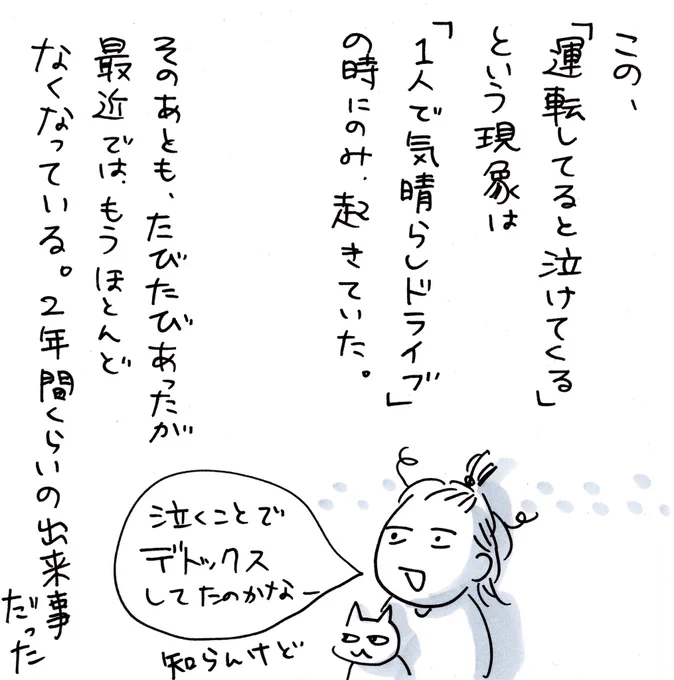 この、
「運転してると泣けてくる」
という現象は
「1人で気晴らしドライブ」
の時にのみ、起きていた。
そのあとも、たびたびあったが
最近では、もうほとんど
なくなっている。2年間くらいの出来事
だった
泣くことで
デトックス
してたのかなー
知らんけど